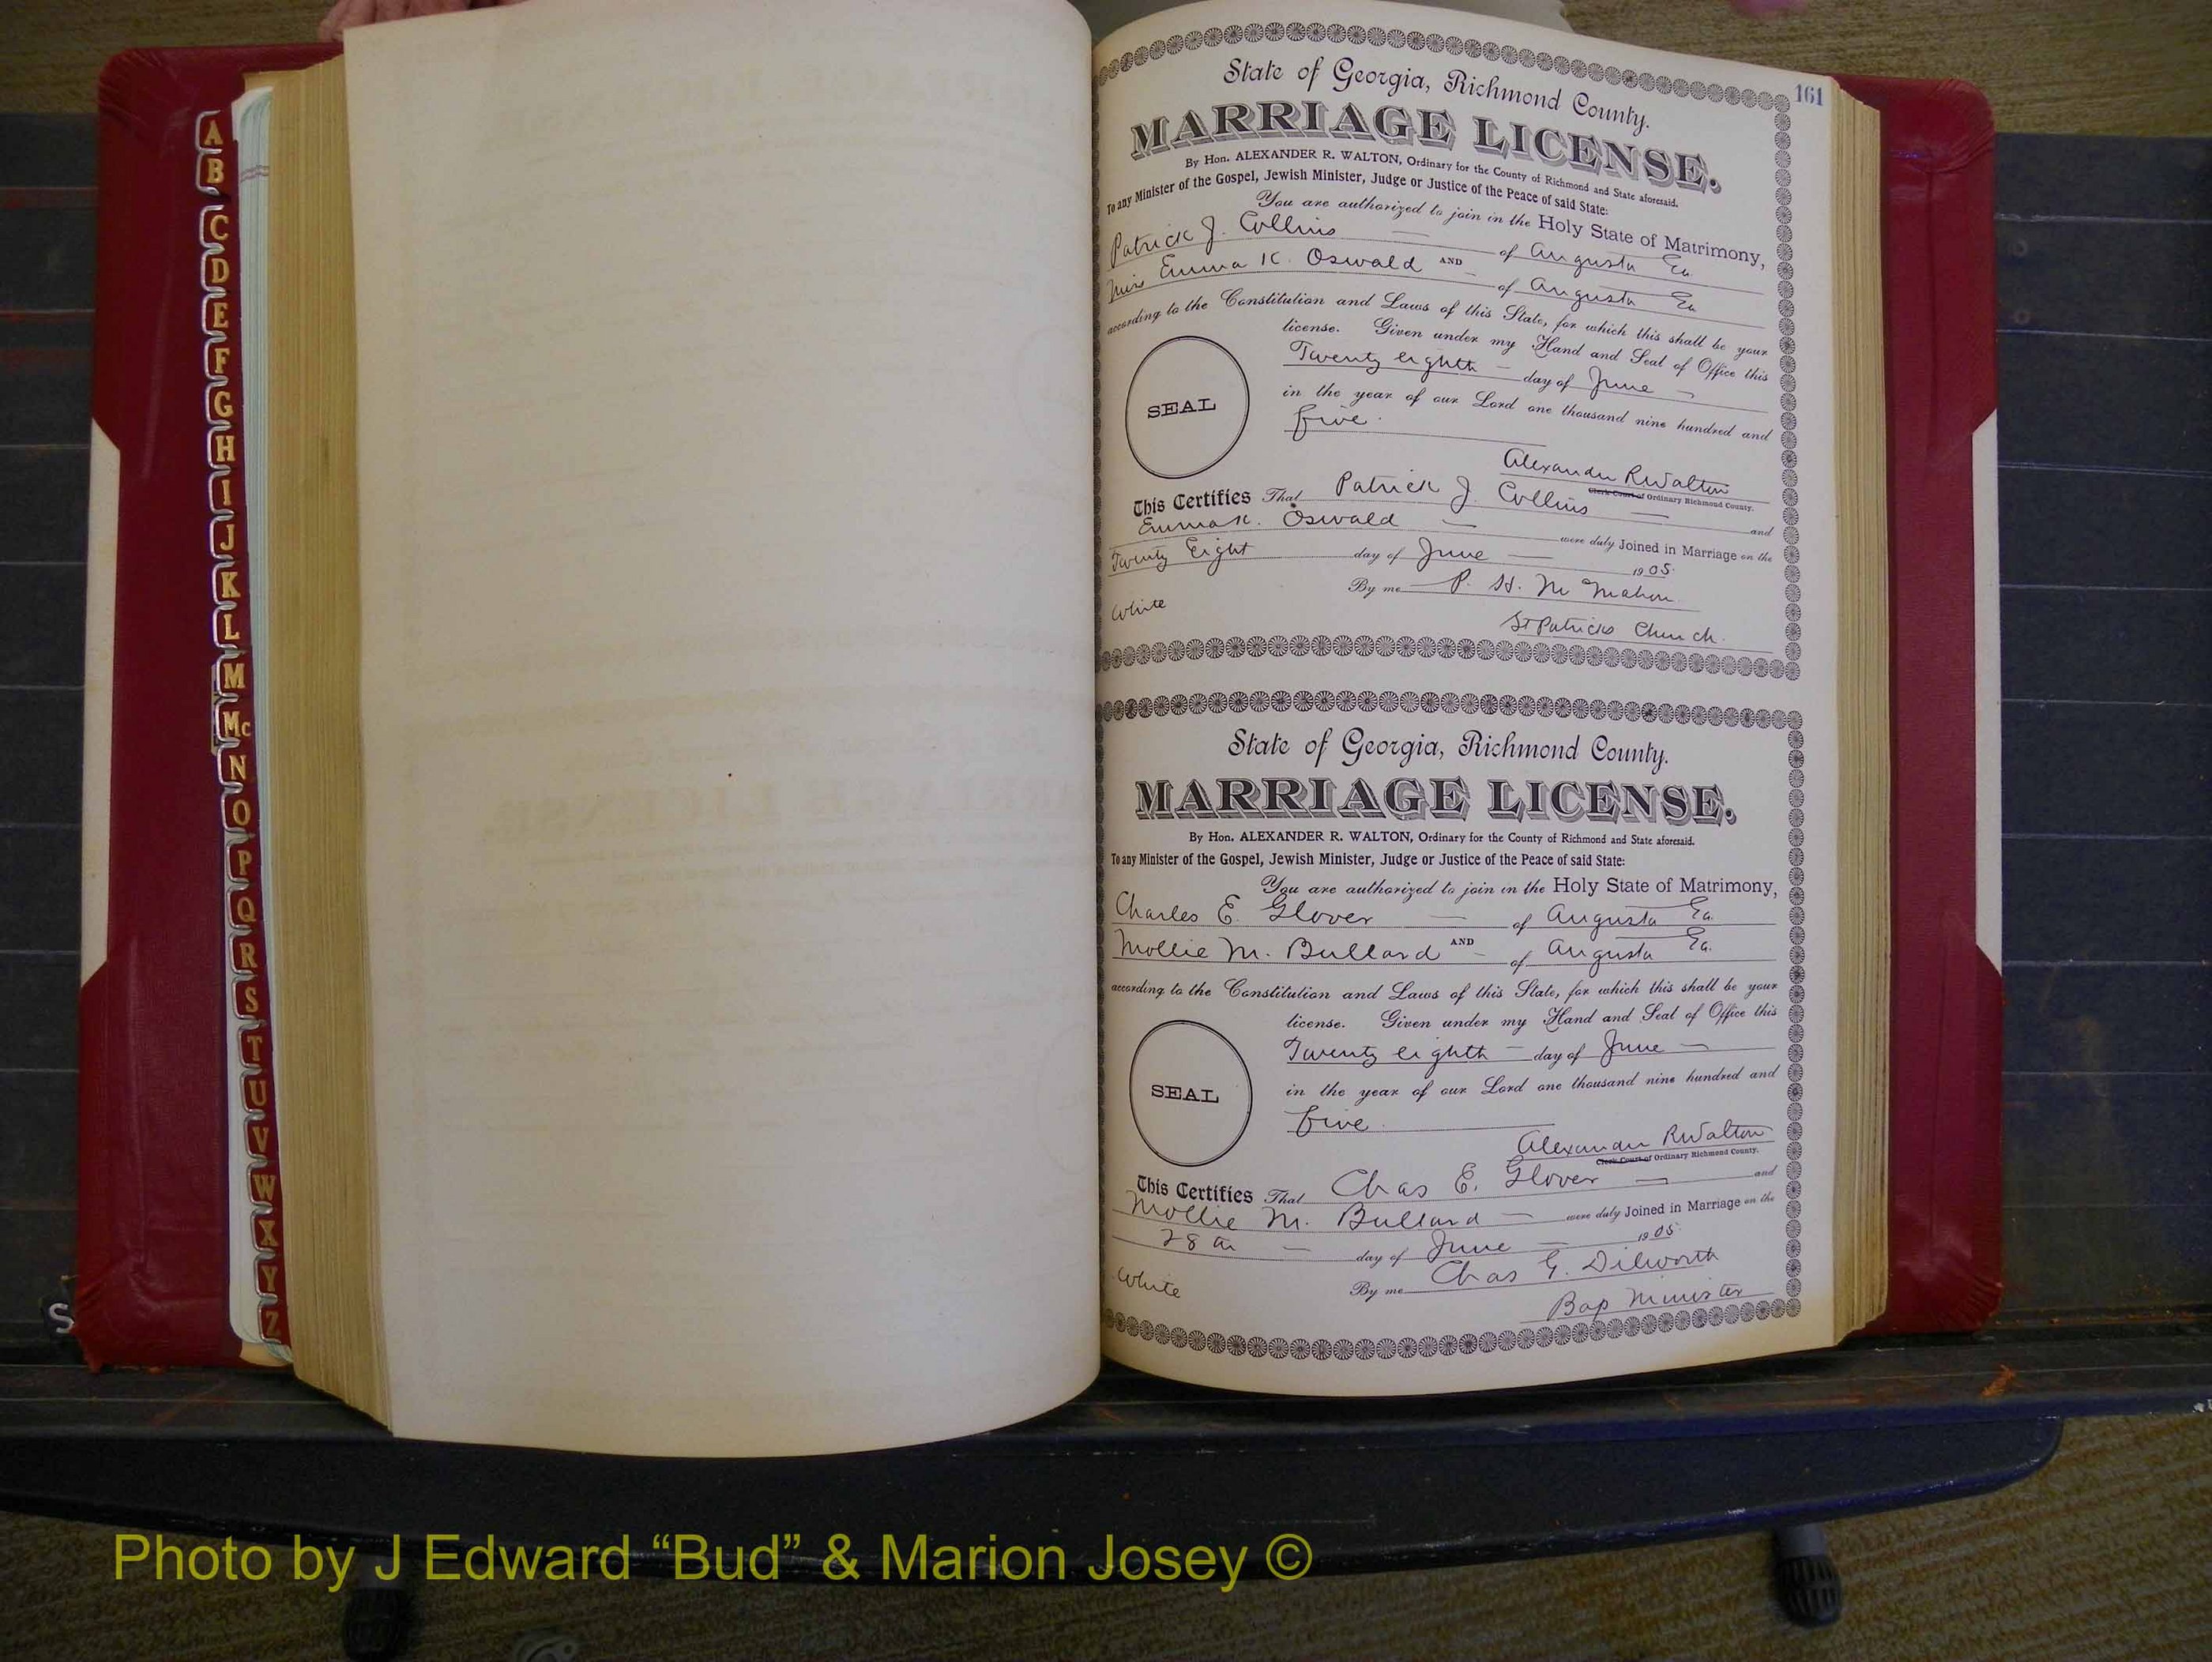 A
B
C
D
E
F
G
H
I
J
K
L
M
Mc
N
O
P
Q
R
S
T
U
V
W
X
Y
Z
S
161
State of Georgia, Richmond County.
MARRIAGE LICENSE.
By Hon. ALEXANDER R. WALTON, Ordinary for the County of Richmond and State aforesaid.
To any Minister of the Gospel, Jewish Minister, Judge or Justice of the Peace of said State:
You are authorized to join in the Holy State of Matrimony,
Patrick J. Collins — of Augusta Ga.
AND
Miss Emma K. Oswald — of Augusta Ga
according to the Constitution and Laws of this State, for which this shall be your
license. Given under my Hand and Seal of Office this
Twenty eighth — day of June —
in the year of our Lord one thousand nine hundred and
five.
SEAL
Alexander R Walton
Clerk Court of Ordinary Richmond County.
This Certifies That Patrick J. Collins — and
Emma K. Oswald — were duly Joined in Marriage on the
Twenty Eight day of June — 1905.
By me P. H. McMahon
White
St Patricks Church.
State of Georgia, Richmond County.
MARRIAGE LICENSE.
By Hon. ALEXANDER R. WALTON, Ordinary for the County of Richmond and State aforesaid.
To any Minister of the Gospel, Jewish Minister, Judge or Justice of the Peace of said State:
You are authorized to join in the Holy State of Matrimony,
Charles E. Glover — of Augusta Ga.
AND
Mollie M. Bullard — of Augusta Ga.
according to the Constitution and Laws of this State, for which this shall be your
license. Given under my Hand and Seal of Office this
Twenty eighth — day of June —
in the year of our Lord one thousand nine hundred and
five.
SEAL
Alexander R Walton
Clerk Court of Ordinary Richmond County.
This Certifies That Chas E. Glover — and
Mollie M. Bullard — were duly Joined in Marriage on the
28th — day of June — 1905.
By me Chas G. Dilworth
White
Bap Minister
Photo by J Edward “Bud” & Marion Josey ©